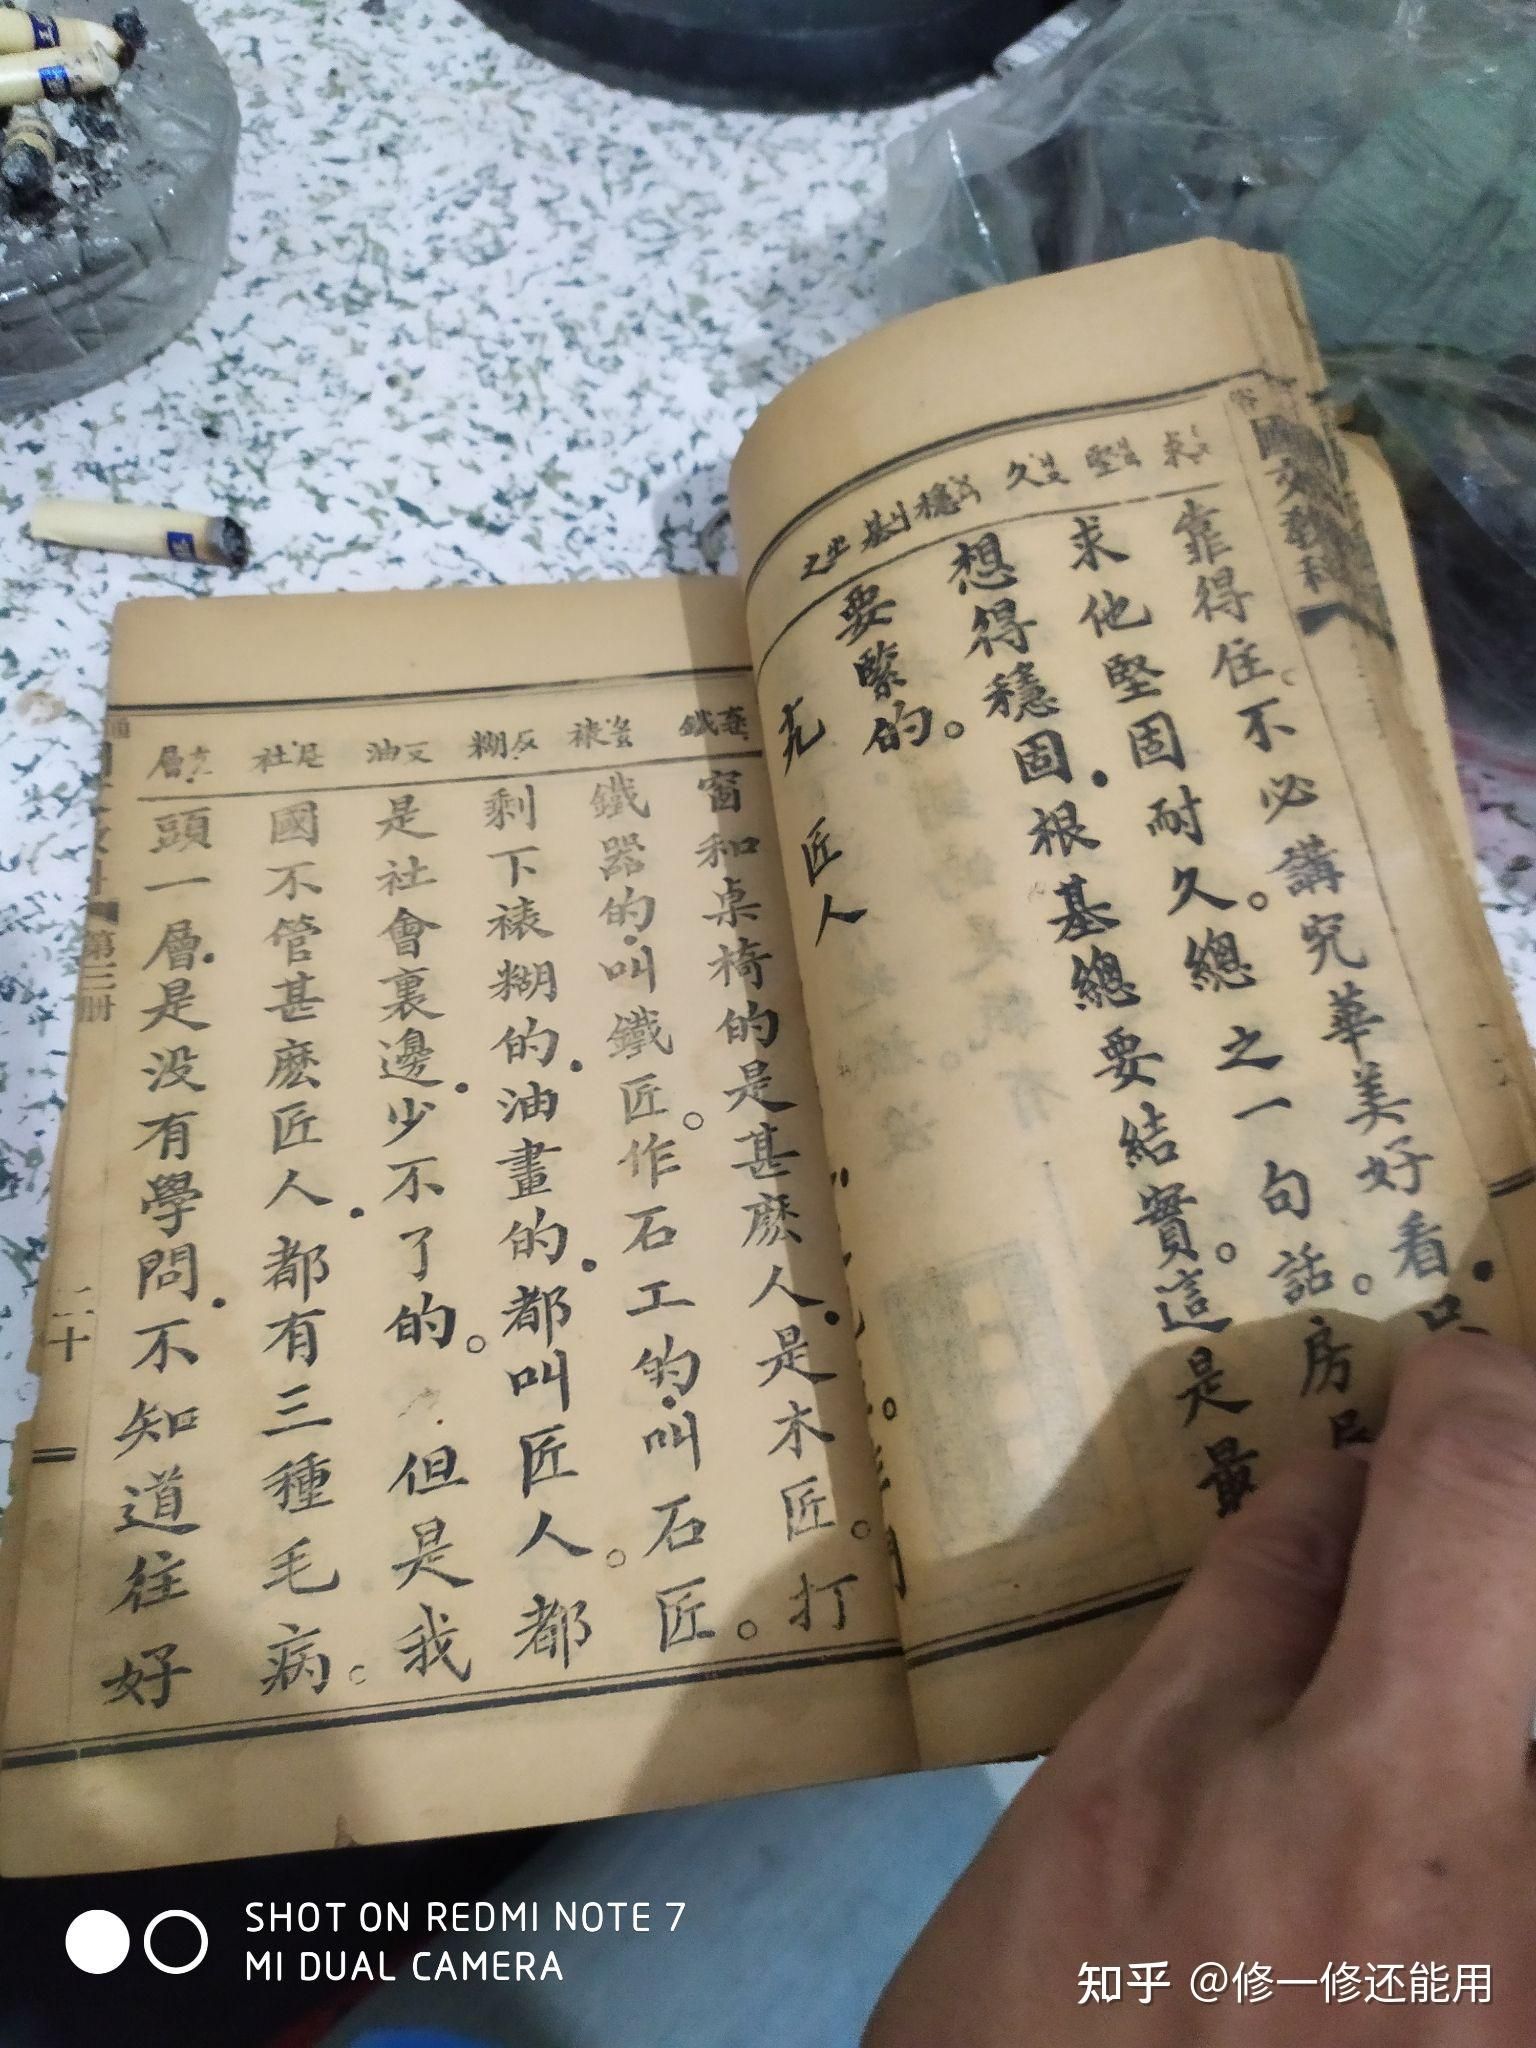 國文教科
求
堅
久
穩
基
靠得住。不必講究華美好看．只
求他堅固耐久。總之一句話。房
想得穩固．根基總要結實。這是最
要緊的。
匠人
鐵
裱
糊
油
社
層
窗和桌椅的是甚麽人．是木匠。打
鐵器的．叫鐵匠。作石工的．叫石匠。
剩下裱糊的．油畫的．都叫匠人。都
是社會裏邊．少不了的。但是我
國不管甚麽匠人．都有三種毛病。
頭一層．是没有學問．不知道往好
第三册
二十
SHOT ON REDMI NOTE 7
MI DUAL CAMERA
知乎 @修一修还能用